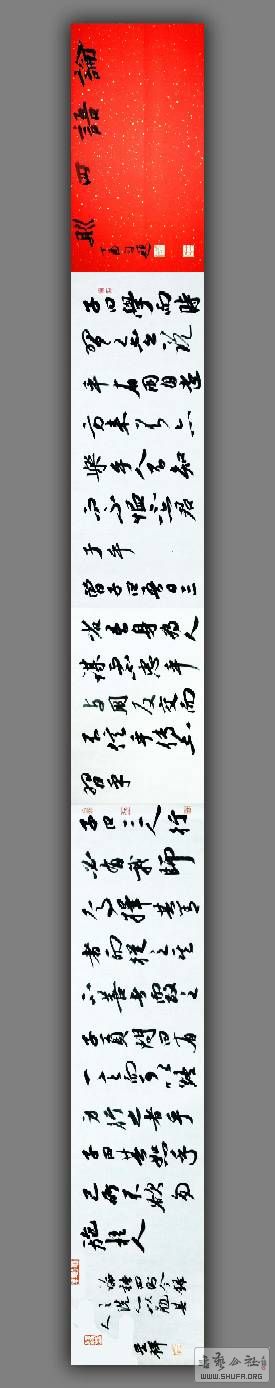 論語四則
子曰學而時
習之不亦說
乎有朋自遠
方來不亦
樂乎人不知
而不慍不亦君
子乎
曾子曰吾日三
省吾身為人
謀而不忠乎
與朋友交而
不信乎傳不
習乎
子曰三人行
必有我師
焉擇其善
者而從之其
不善者改之
子貢問曰有
一言而可以終
身行之者乎
子曰其恕乎
己所不欲勿
施於人
WWW.SHUFA.ORG